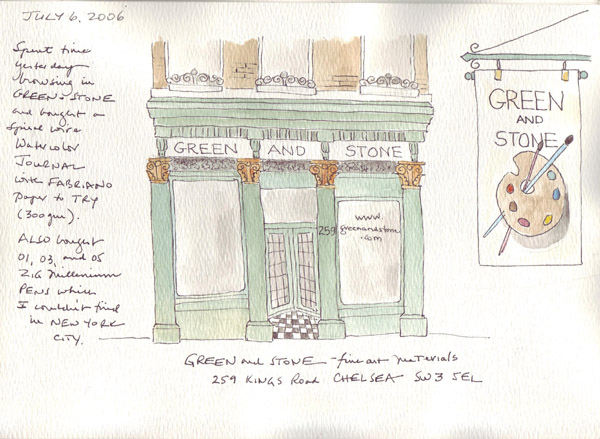 JULY 6, 2006
Spent time
yesterday
browsing in
GREEN & STONE
and bought a
spiral wire
Watercolor
JOURNAL
with FABRIANO
paper to TRY
(300gm).
ALSO bought
01, 03, and 05
ZIG Millenium
PENS which
I couldn't find
in NEW YORK
CITY.
GREEN AND STONE
259
www.
greenandstone
.com
GREEN
AND
STONE
GREEN and STONE - fine art materials
259 KINGS Road CHELSEA SW3 5EL